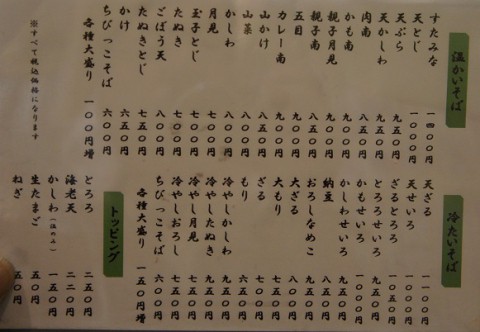 温かいそば
すたみな 一四〇〇円
天とじ 一〇〇〇円
天ぷら 九五〇円
天かしわ 九五〇円
肉南 九五〇円
かも南 九五〇円
親子月見 九五〇円
親子南 八五〇円
五目 八五〇円
カレー南 八五〇円
山かけ 八五〇円
山菜 八〇〇円
かしわ 八〇〇円
月見 七〇〇円
玉子とじ 七五〇円
たぬき 七〇〇円
ごぼう天 八〇〇円
たぬきとじ 七五〇円
かけ 六五〇円
ちびっこそば 六〇〇円
各種大盛り 一〇〇円増
※すべて税込価格になります
冷たいそば
天ざる 一一〇〇円
天せいろ 一一〇〇円
ざるとろろ 一〇五〇円
とろろせいろ 一〇五〇円
かもせいろ 一〇五〇円
かしわせいろ 一〇〇〇円
納豆 八五〇円
おろしなめこ 九五〇円
大ざる 八〇〇円
大もり 七五〇円
ざる 七〇〇円
もり 六五〇円
冷やしかしわ 九五〇円
冷やしたぬき 九五〇円
冷やし月見 七五〇円
冷やしおろし 七五〇円
ちびっこそば 六〇〇円
各種大盛り 一五〇円増
トッピング
とろろ 二五〇円
海老天 二二〇円
かしわ(温のみ) 一五〇円
生たまご 五〇円
ねぎ 五〇円